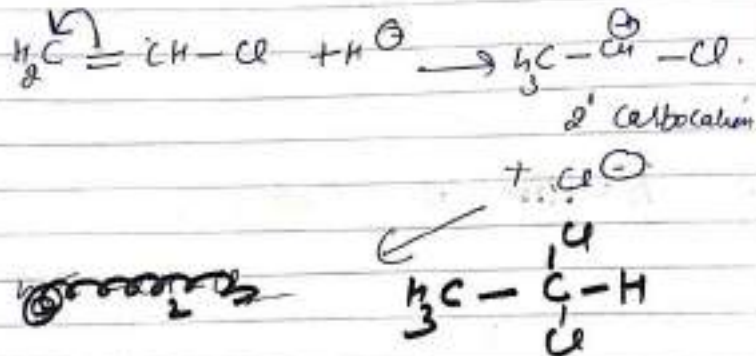 H₂C = CH – Cl + H⊕ → H₃C – CH⊕ – Cl.
2° Carbocation
+ Cl⊖
Cl
H₃C – C – H
Cl